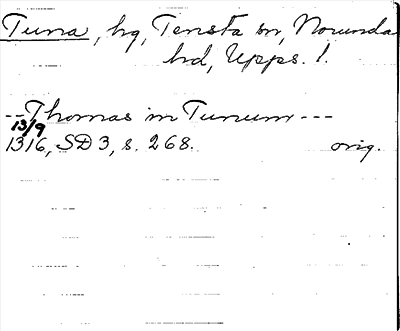 Tuna, hg, Tensta sn, Norunda
hd, Upps. l.
--Thomas in Tunum---
13/9
1316, SD 3, s. 268. orig.